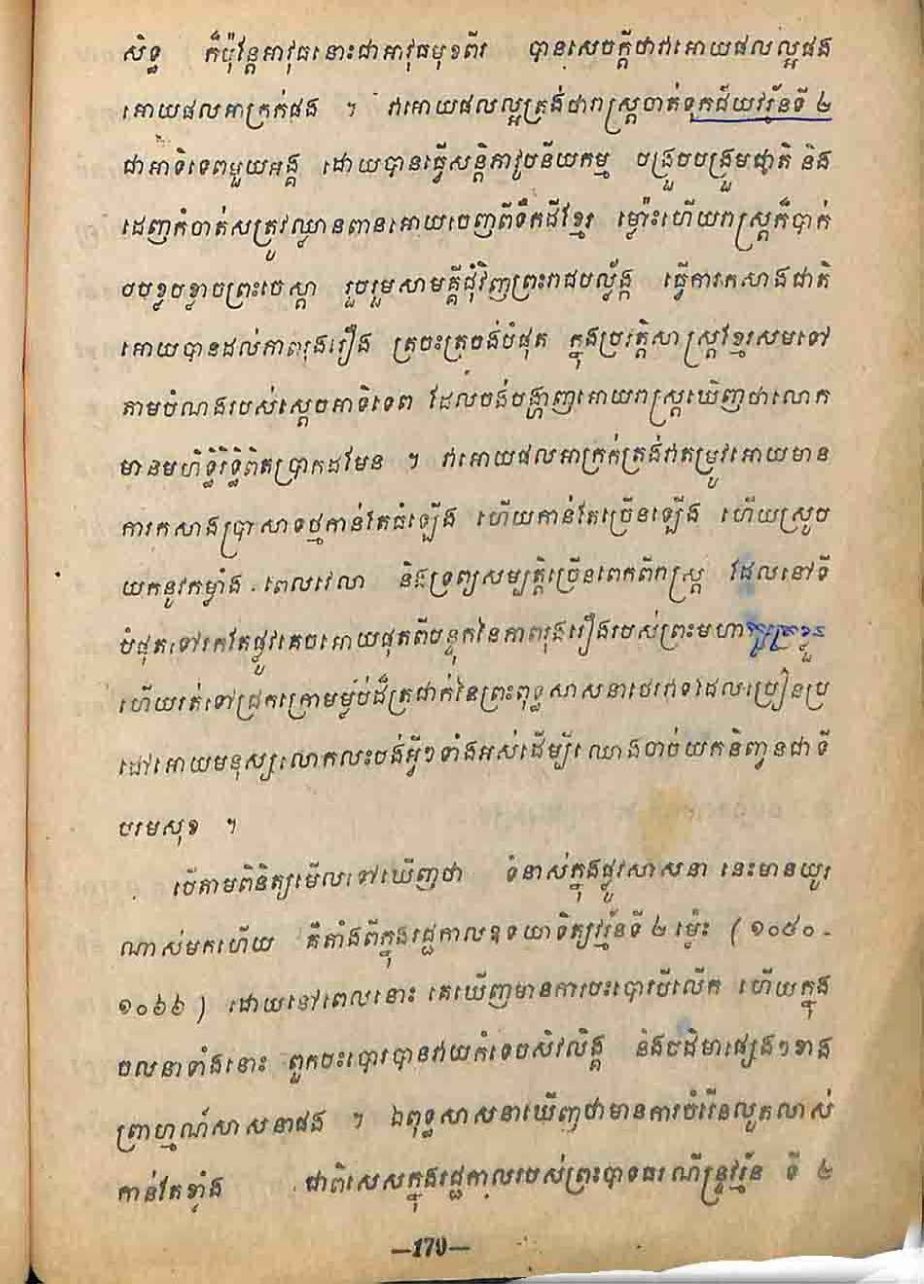 សិទ្ធ ក៏ប៉ុន្តែអាវុធនោះជាអាវុធមុខពីរ បានសេចក្តីថាវាអោយផលល្អផង
អោយផលអាក្រក់ផង ។ វាអោយផលល្អត្រង់ថារាស្ត្រចាត់ទុកជ័យវរ្ម័នទី ២
ជាអាទិទេពមួយអង្គ ដោយបានធ្វើសន្តិភាវូបនីយកម្ម បង្រួបបង្រួមជាតិ និង
ដេញកំចាត់សត្រូវឈ្លានពានអោយចេញពីទឹកដីខ្មែរ ម្ល៉ោះហើយរាស្ត្រក៏បាក់
បបខ្លបខ្លាចព្រះចេស្តា រួបរួមសាមគ្គីជុំវិញព្រះរាជបល្ល័ង្ក ធ្វើការកសាងជាតិ
អោយបានដល់ភាពរុងរឿង ត្រចះត្រចង់បំផុត ក្នុងប្រវត្តិសាស្ត្រខ្មែរសមទៅ
តាមបំណងរបស់ស្តេចអាទិទេព ដែលចង់បង្ហាញអោយរាស្ត្រឃើញថាលោក
មានមហិទ្ធិរិទ្ធិពិតប្រាកដមែន ។ វាអោយផលអាក្រក់ត្រង់វាតម្រូវអោយមាន
ការកសាងប្រាសាទថ្មកាន់តែធំឡើង ហើយកាន់តែច្រើនឡើង ហើយស្រូប
យកនូវកម្លាំង ពេលវេលា និងទ្រព្យសម្បត្តិច្រើនពេកពីរាស្ត្រ ដែលនៅទី
បំផុតទៅរកតែផ្លូវគេចអោយផុតពីបន្ទុកនៃភាពរុងរឿងរបស់ព្រះមហា
ហើយរត់ទៅជ្រកក្រោមម្លប់ដ៏ត្រជាក់នៃព្រះពុទ្ធសាសនាថេរវាទដែលប្រៀនប្រ
ដៅអោយមនុស្សលោកលះបង់អ្វីៗទាំងអស់ដើម្បីឈោងចាប់យកនិញ្វនជាទី
បរមសុខ ។
បើតាមពិនិត្យមើលទៅឃើញថា ទំនាស់ក្នុងផ្លូវសាសនា នេះមានយូរ
ណាស់មកហើយ គឺតាំងពីក្នុងរជ្ជកាលឧទយាទិត្យវរ្ម័នទី ២ ម៉្លេះ ( ១០៥០ -
១០៦៦ ) ដោយនៅពេលនោះ គេឃើញមានការបះបោរបីលើក ហើយក្នុង
ចលនាទាំងនោះ ពួកបះបោរបានវាយកំទេចសិវលិង្គ និងបដិមាផ្សេងៗខាង
ព្រាហ្មណ៍សាសនាផង ។ ឯពុទ្ធសាសនាឃើញថាមានការចំរើនលូតលាស់
កាន់តែខ្លាំង ជាពិសេសក្នុងរជ្ជកាលរបស់ព្រះបាទធរណីន្ទ្រវរ្ម័ន ទី ២
—179—